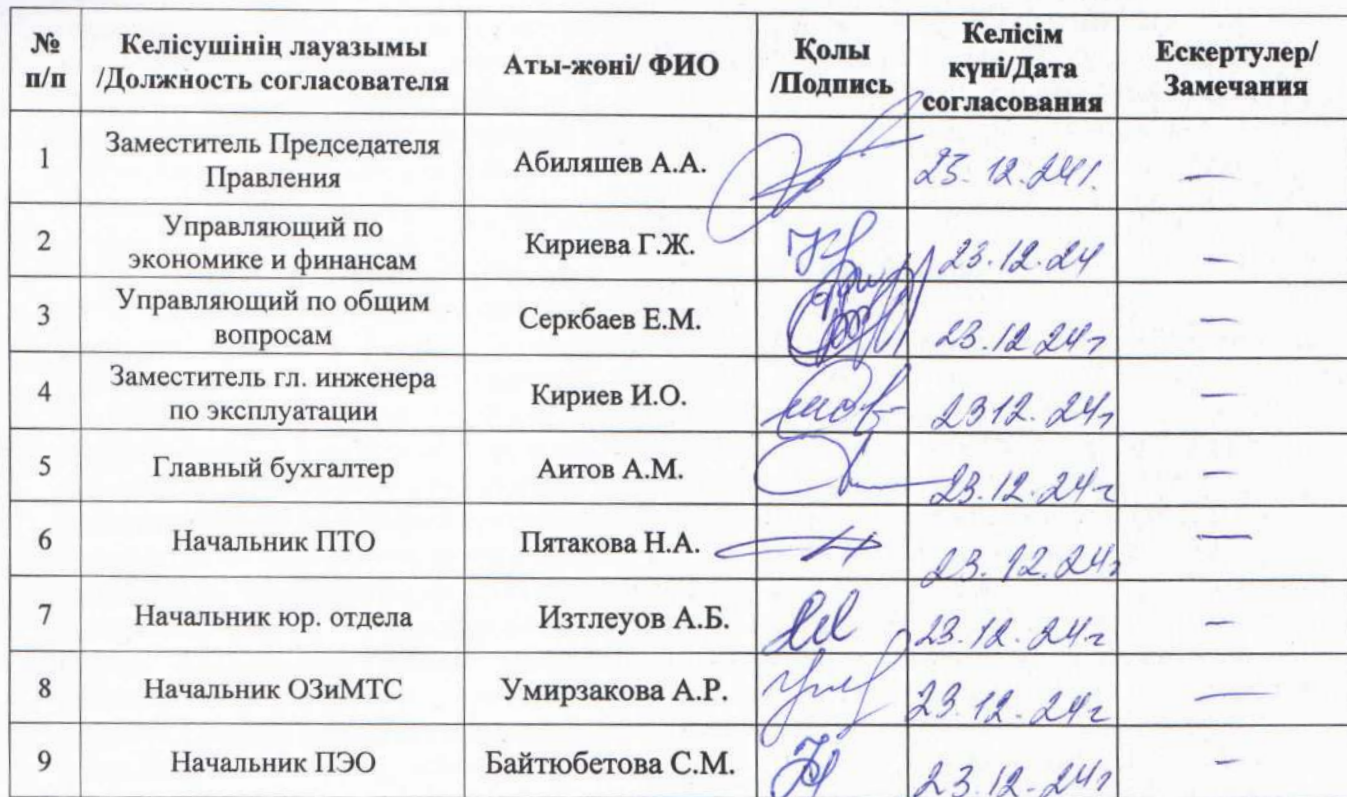 № п/п
Келісушінің лауазымы /Должность согласователя
Аты-жөні/ ФИО
Қолы /Подпись
Келісім күні/Дата согласования
Ескертулер/ Замечания
1
Заместитель Председателя Правления
Абиляшев А.А.
—
2
Управляющий по экономике и финансам
Кириева Г.Ж.
23.12.24
—
3
Управляющий по общим вопросам
Серкбаев Е.М.
23.12.24г
—
4
Заместитель гл. инженера по эксплуатации
Кириев И.О.
23 12. 24г
—
5
Главный бухгалтер
Аитов А.М.
23.12.24г
—
6
Начальник ПТО
Пятакова Н.А.
23.12.24г
—
7
Начальник юр. отдела
Изтлеуов А.Б.
23.12.24г
—
8
Начальник ОЗиМТС
Умирзакова А.Р.
23.12.24г
—
9
Начальник ПЭО
Байтюбетова С.М.
23.12.24г
—